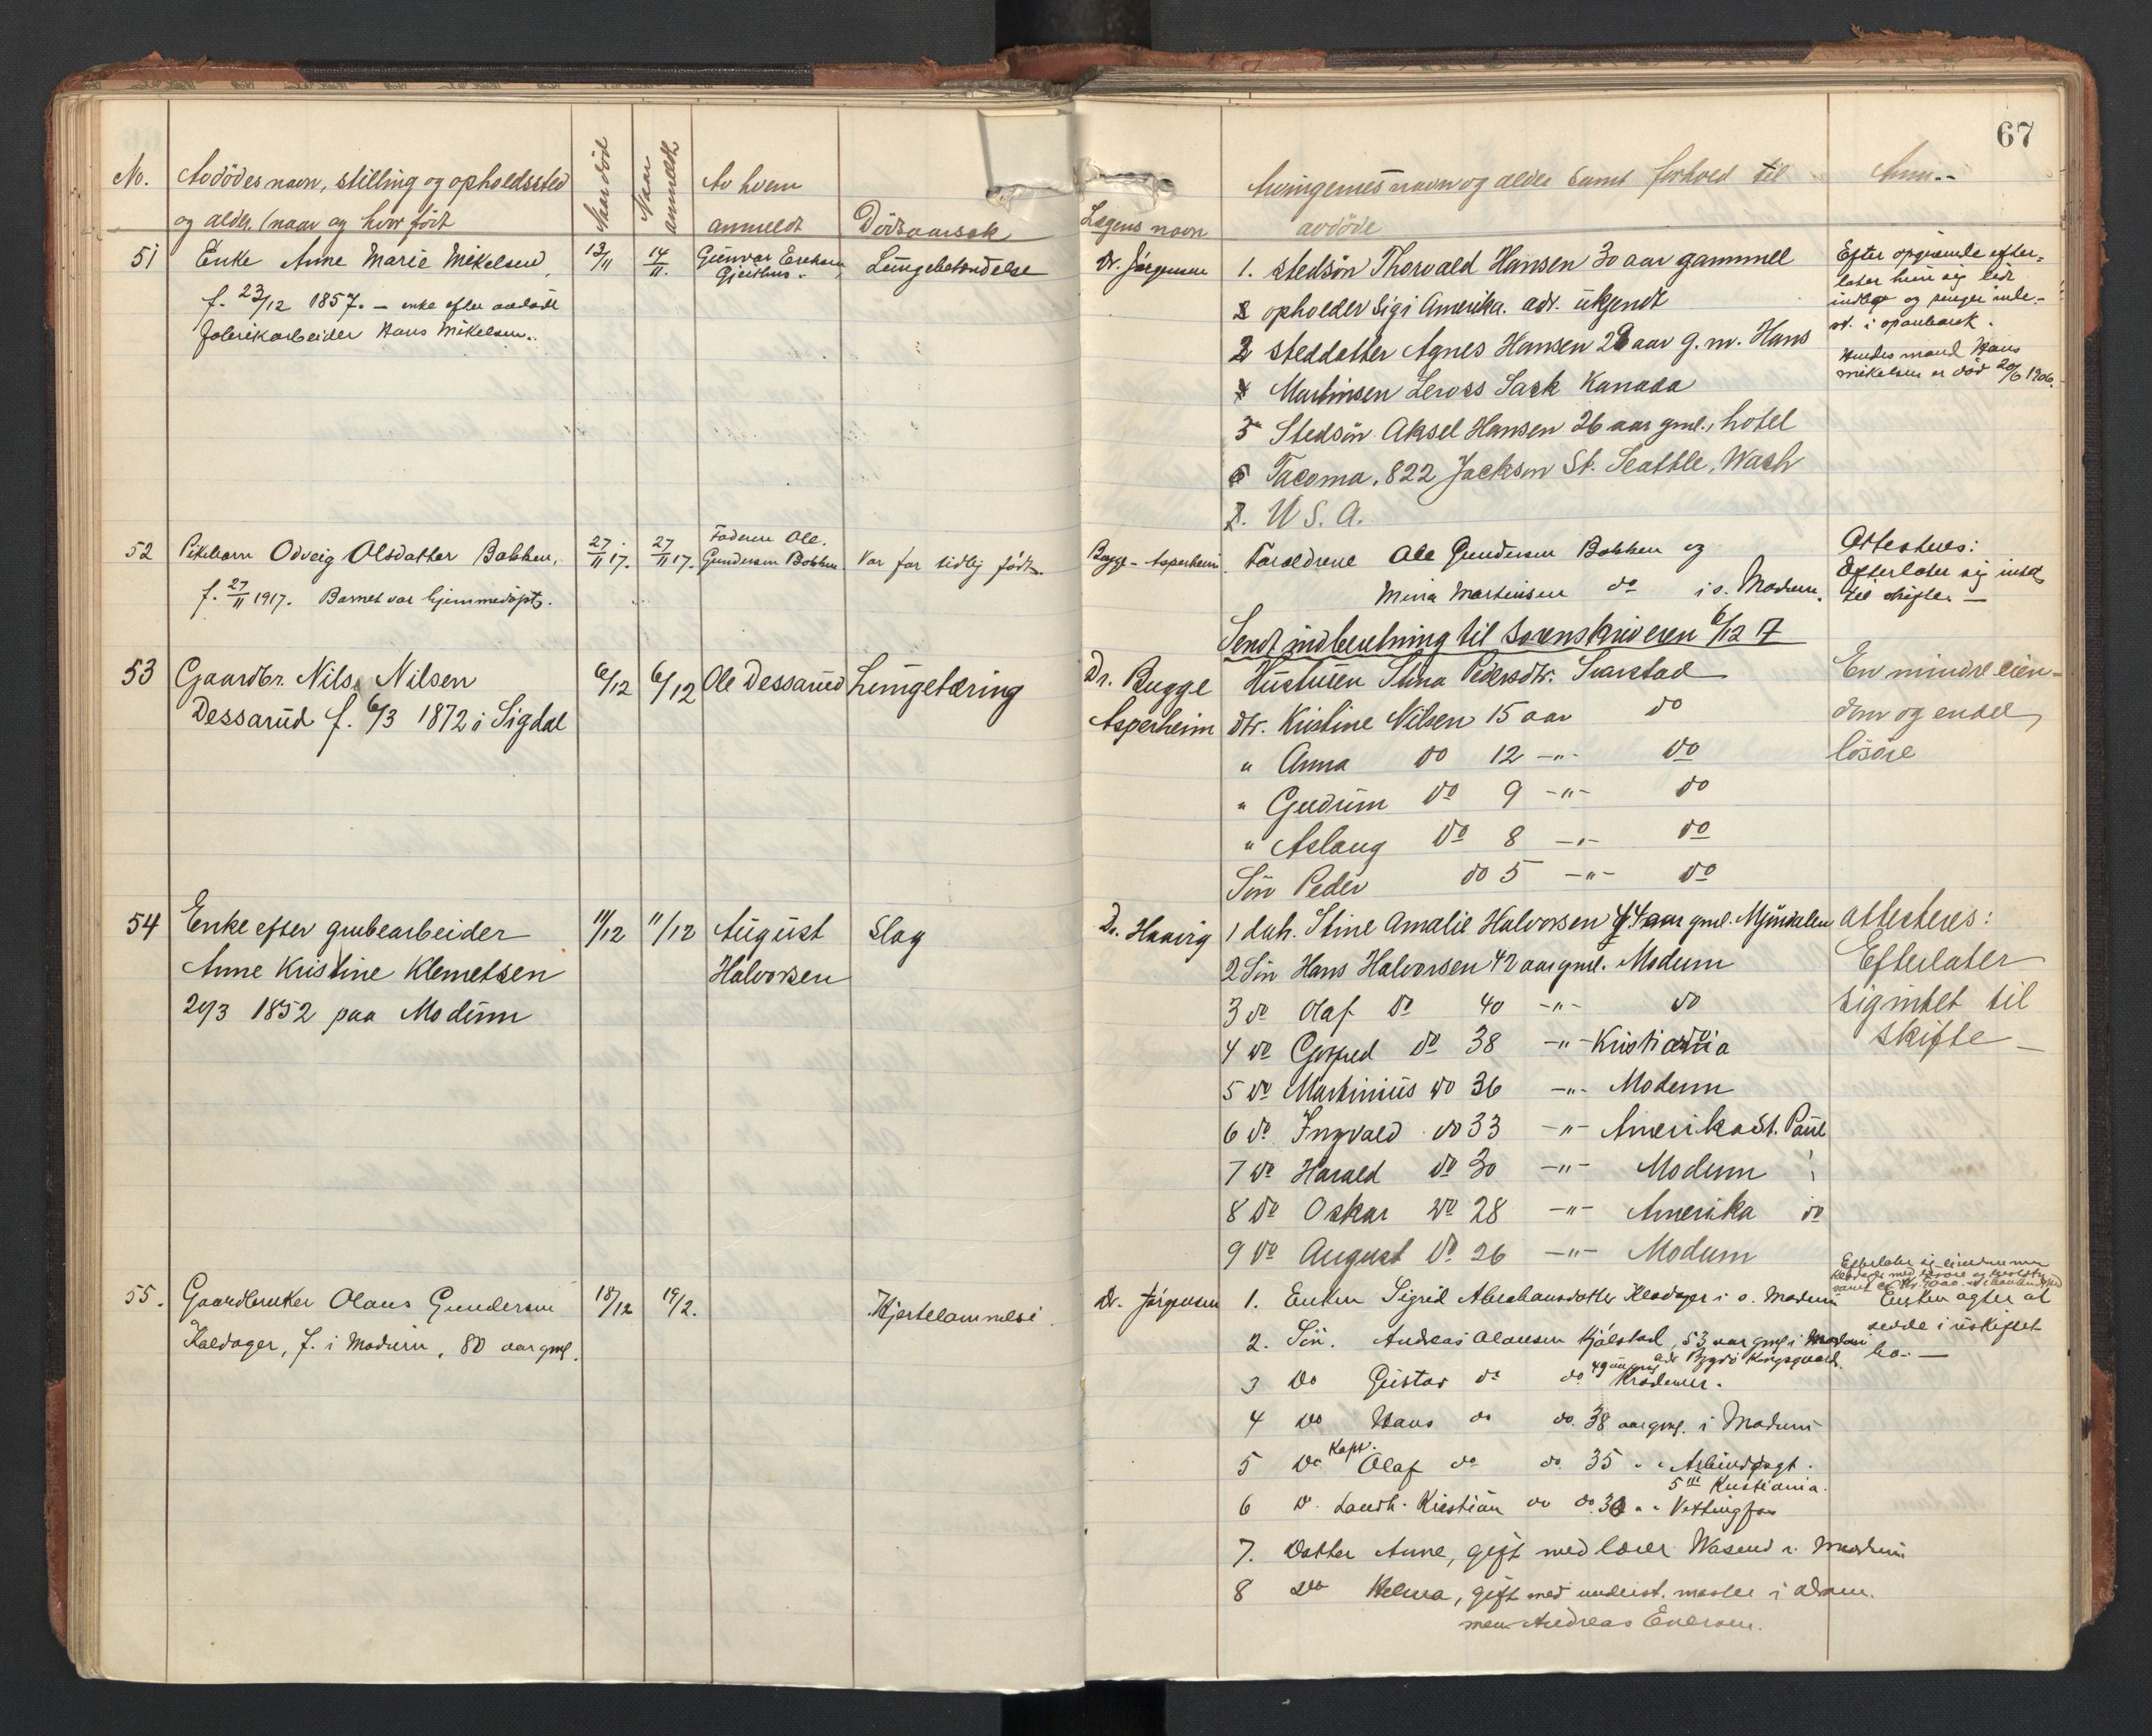 67
No. Avdödes navn, stilling og opholdssted
og alder. (naar og hvor født
Naar död
Naar anmeldt
Av hvem
anmeldt
Dödsaarsak
Lægens navn
Arvingernes navn og alder samt forhold til
avdöde
Anm.
51 Enke Anne Marie Mikelsen,
f. 23/12 1857. – enke efter avdöde
fabrikarbeider Hans Mikelsen.
13/11
14/11.
Gunvor
Gjeithus.
Lungebetændelse
Dr. Jörgensen
1. Stedsön Thorvald Hansen 30 aar gammel
opholder sig i Amerika. adr. ukjendt
2 Steddatter Agnes Hansen 28 aar g. m. Hans
Martinsen Leross Sask Kanada
3 Stedsön Aksel Hansen 26 aar gml., hotel
Tacoma, 822 Jackson St. Seattle, Wash
U S. A.
Efter opgivende efter-
later hun sig lidt
indbo og penger
i sparebank.
Hendes mand Hans
Mikelsen er död 20/6 1906.
52 Pikebarn Odveig Olsdatter Bakken,
f. 27/11 1917. Barnet var hjemmedöpt.
27/11 17.
27/11 17.
Faderen Ole
Gundersen Bakken
Var for tidlig födt.
Bugge-Asperheim
Foreldrene Ole Gundersen Bakken og
Mina Martinsen do i ö. Modum.
Attesteres:
Efterlater sig intet
til skifte –
Sendt indberetning til sorenskriveren 6/12 17
53 Gaardbr. Nils Nilsen
Dessarud f. 6/3 1872 i Sigdal
6/12
6/12
Ole Dessarud
Lungetæring
Dr. Bugge
Asperheim
Hustruen Stina Pedersdtr. Svarstad
dtr. Kristine Nilsen 15 aar do
" Anna do 12 –"– do
" Gudrun do 9 –"– do
" Aslaug do 8 –"– do
Sön Peder do 5 –"– do
En mindre eien-
dom og endel
lösöre
54 Enke efter grubearbeider
Anne Kristine Klemetsen
29/3 1852 paa Modum
11/12
11/12
August
Halvorsen
Slag
Dr. Haavig
1 dat. Stine Amalie Halvorsen 44 aar gml. Mjøndalen
2 Sön Hans Halvorsen 42 aar gml. Modum
3 do Olaf do 40 –"– do
4 do do 38 –"– Kristiania
5 do Martinius do 36 –"– Modum
6 do Ingvald do 33 –"– Amerika St. Paul
7 do Harald do 30 –"– Modum
8 do Oskar do 28 –"– Amerika do
9 do August do 26 –"– Modum
attesteres:
Efterlater
sig intet til
skifte –
55. Gaardbruker Olaus Gundersen
Kaldager, f. i Modum, 80 aar gml.
18/12
19/2.
Hjertelammelse
Dr. Jörgensen
1. Enken Sigrid Abrahamsdatter i ö. Modum
2. Sön. Andreas Olausen Kjölstad, 53 aar gml i Modum
3 do Gustav do do 49 aar gml
adr Bygdö Kongsgaard.
4 do Hans do do. 38 aar gml. i Modum
5 do Kapt. Olaf do do. 35 " "
5 III Kristiania.
6 do. Landh. Kristian do do. 30 " " Vestfossen
7. Datter Anne, gift med lærer i Modum
8 do Helma, gift med i
men Andreas Evensen.
Enken agter at
sidde i uskiftet
bo. –